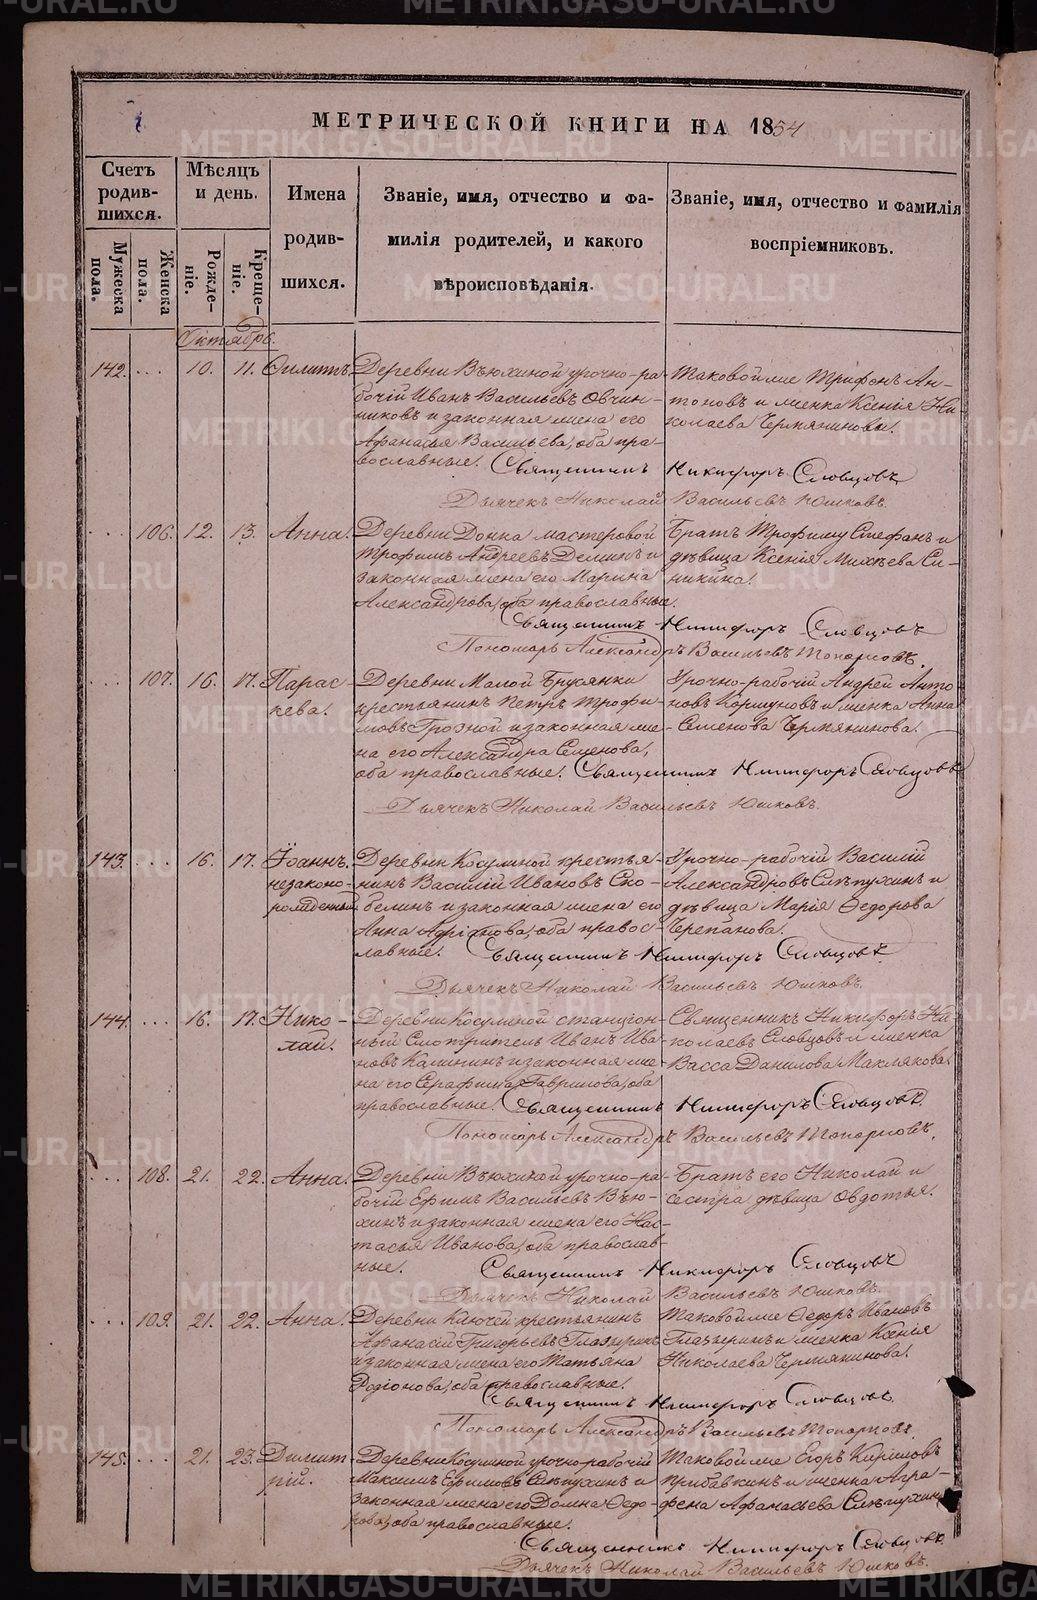 METRIKI.GASO-URAL.RU
МЕТРИЧЕСКОЙ КНИГИ НА 1854
Счетъ родив-шихся.
Мужеска пола.
Женска пола.
Мѣсяцъ и день.
Рожде-ніе.
Креще-ніе.
Имена родив-шихся.
Званіе, имя, отчество и фа-
милія родителей, и какого
вѣроисповѣданія.
Званіе, имя, отчество и фамилія
воспріемниковъ.
Октябрь.
142. ... 10. 11.
Деревни Вьюхиной урочно-ра-
бочій Иванъ Васильевъ Овчин-
никовъ и законная жена его
Афанасья Васильева, оба пра-
вославные.
Таковой же Трифонъ Ан-
тоновъ и женка Ксенія Ни-
колаева Чермянинова.
Священникъ Никифоръ Словцовъ
Дьячекъ Николай Васильевъ Юшковъ.
... 106. 12. 13. Анна.
Деревни мастеровой
Трофимъ Андреевъ Деминъ и
законная жена его Марина
Александрова, оба православные.
Братъ Трофиму Стефанъ и
дѣвица Ксенія Михѣева Си-
никина.
Священникъ Никифоръ Словцовъ
Пономарь Александръ Васильевъ Топорковъ.
... 107. 16. 17. Парас-
кева.
Деревни Малой Брусянки
крестьянинъ Петръ Трофи-
мовъ Грозной и законная же-
на его Александра Семенова,
оба православные.
Урочно-рабочій Андрей Анто-
новъ Коршуновъ и женка Анна
Семенова Чермянинова.
Священникъ Никифоръ Словцовъ
Дьячекъ Николай Васильевъ Юшковъ.
143. ... 16. 17. Іоаннъ.
незаконо-
рожденный
Деревни Косулиной крестья-
нинъ Василій Ивановъ Ско-
белинъ и законная жена его
Анна Адріанова, оба правос-
лавные.
Урочно-рабочій Василій
Александровъ Слѣпухинъ и
дѣвица Марія Ѳедорова
Черепанова.
Священникъ Никифоръ Словцовъ
Дьячекъ Николай Васильевъ Юшковъ.
144. ... 16. 17. Нико-
лай.
Деревни Косулиной станціон-
ный Смотритель Иванъ Ива-
новъ Калининъ и законная же-
на его Серафима Гаврилова, оба
православные.
Священникъ Никифоръ Ни-
колаевъ Словцовъ и женка
Васса Данилова Маклякова.
Священникъ Никифоръ Словцовъ.
Пономарь Александръ Васильевъ Топорковъ.
... 108. 21. 22. Анна.
Деревни Вьюхиной урочно-ра-
бочій Ефимъ Васильевъ Вью-
хинъ и законная жена его Нас-
тасья Иванова, оба православ-
ные.
Братъ его Николай и
сестра дѣвица Овдотья.
Священникъ Никифоръ Словцовъ
Дьячекъ Николай Васильевъ Юшковъ.
... 109. 21. 22. Анна.
Деревни Ключей крестьянинъ
Афанасій Григорьевъ Глазыринъ
и законная жена его Татьяна
Родіонова, оба православные.
Таковой же Ѳедоръ Ивановъ
Глазыринъ и женка Ксенія
Николаева Чермянинова.
Священникъ Никифоръ Словцовъ.
Пономарь Александръ Васильевъ Топорковъ.
145. ... 21. 23. Димит-
рій.
Деревни Косулиной урочно-рабочій
Максимъ Ефимовъ Слѣпухинъ и
законная жена его Домна Ѳедо-
рова, оба православные.
Таковой же Егоръ Кириловъ
Прибавкинъ и женка Агра-
фена Афанасьева Слѣпухина
Священникъ Никифоръ Словцовъ.
Дьячекъ Николай Васильевъ Юшковъ.